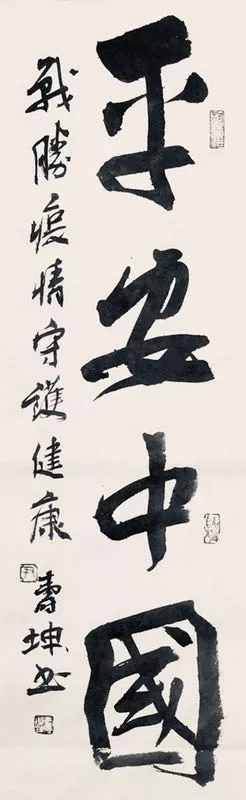 平安中国
戰勝疫情守護健康
壽坤书